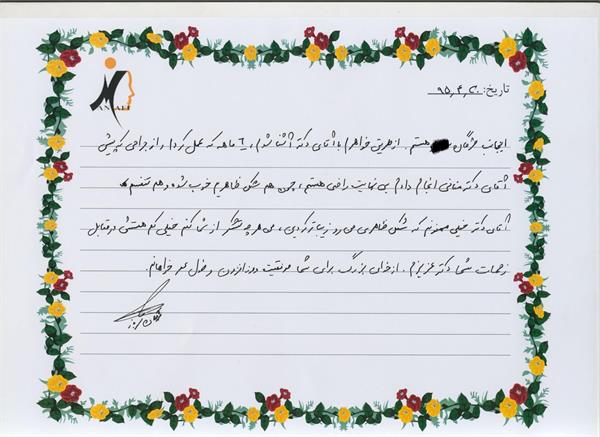 MANAFI
تاریخ: ۹۵,۴,۲۰
اینجانب مژگان هستم. از طریق خواهرم با آقای دکتر آشنا شدم، ۶ ماهه که عمل کردم و از جراحی که پیش
آقای دکتر منافی انجام دادم بی نهایت راضی هستم، چون هم شکل ظاهریم خوب شده و هم تنفسم.
آقای دکتر خیلی ممنونم که شکل ظاهری می رو زیباتر کردین، من هر چه تشکر از شما کنم خیلی کم هستش در قبال
زحمات شما دکتر عزیزم. از خدای بزرگ برای شما موفقیت روزافزون و طول عمر خواهانم.